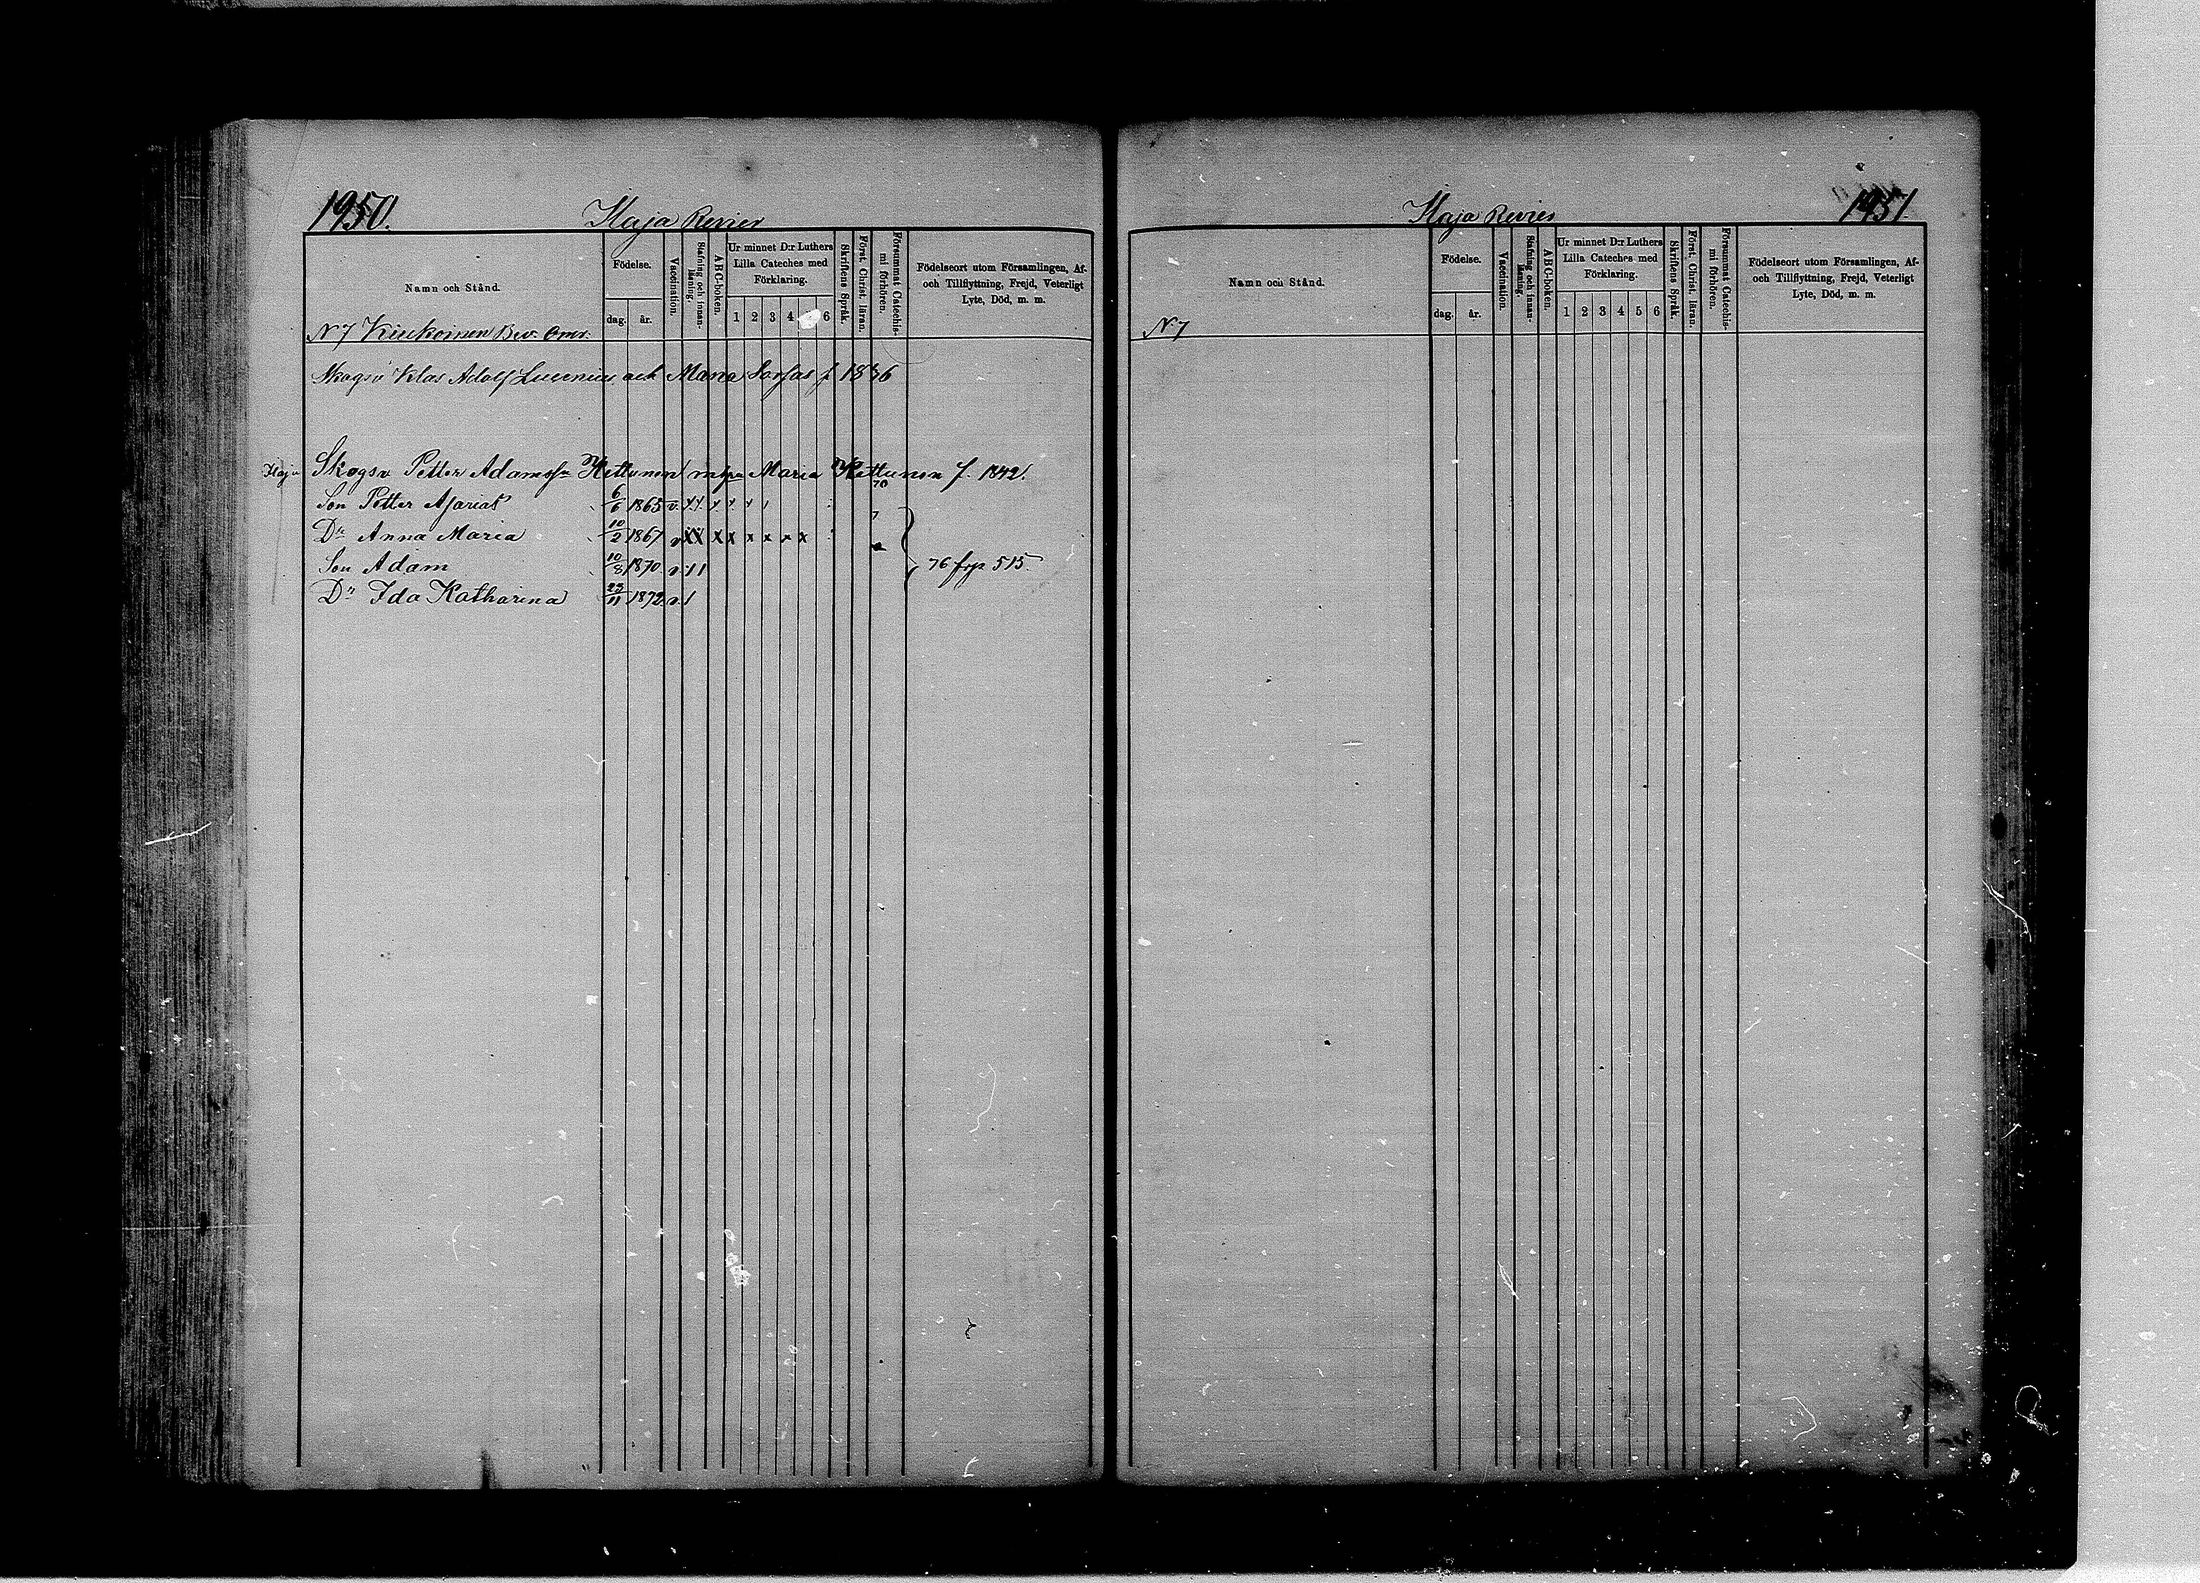 1950.
Ilaja Revier
Namn och Stånd.
Födelse.
dag.
år.
Vaccination.
Stafning och innan-
läsning.
ABC-boken.
Ur minnet D:r Luthers
Lilla Cateches med
Förklaring.
1 2 3 4 6
Skriftens Språk.
Först. Christ. läran.
Försummat Catechis-
mi förhören.
Födelseort utom Församlingen, Af-
och Tillflyttning, Frejd, Veterligt
Lyte, Död, m. m.
N 7 Kiukoinen Bev. Omr.
Skogsv Klas Adolf Lucenius och Maria Sorsas f 1836
Ilaja Skogsv Petter Adamss:n Kettunen m hu Maria Kettunen f. 1842.
70
Son Petter Asarias 6/6 1865 v. x x x x x
7
Dr Anna Maria 10/2 1867 v X X x x x x x x
Son Adam 10/8 1870. v. 1 1
76 frp 515
Dr Ida Katharina 23/11 1872 v. 1
Ilaja Revier
1951.
Namn och Stånd.
Födelse.
dag.
år.
Vaccination.
Stafning och innan-
läsning.
ABC-boken.
Ur minnet D:r Luthers
Lilla Cateches med
Förklaring.
1 2 3 4 5 6
Skriftens Språk.
Först. Christ. läran.
Försummat Catechis-
mi förhören.
Födelseort utom Församlingen, Af-
och Tillflyttning, Frejd, Veterligt
Lyte, Död, m. m.
N 7